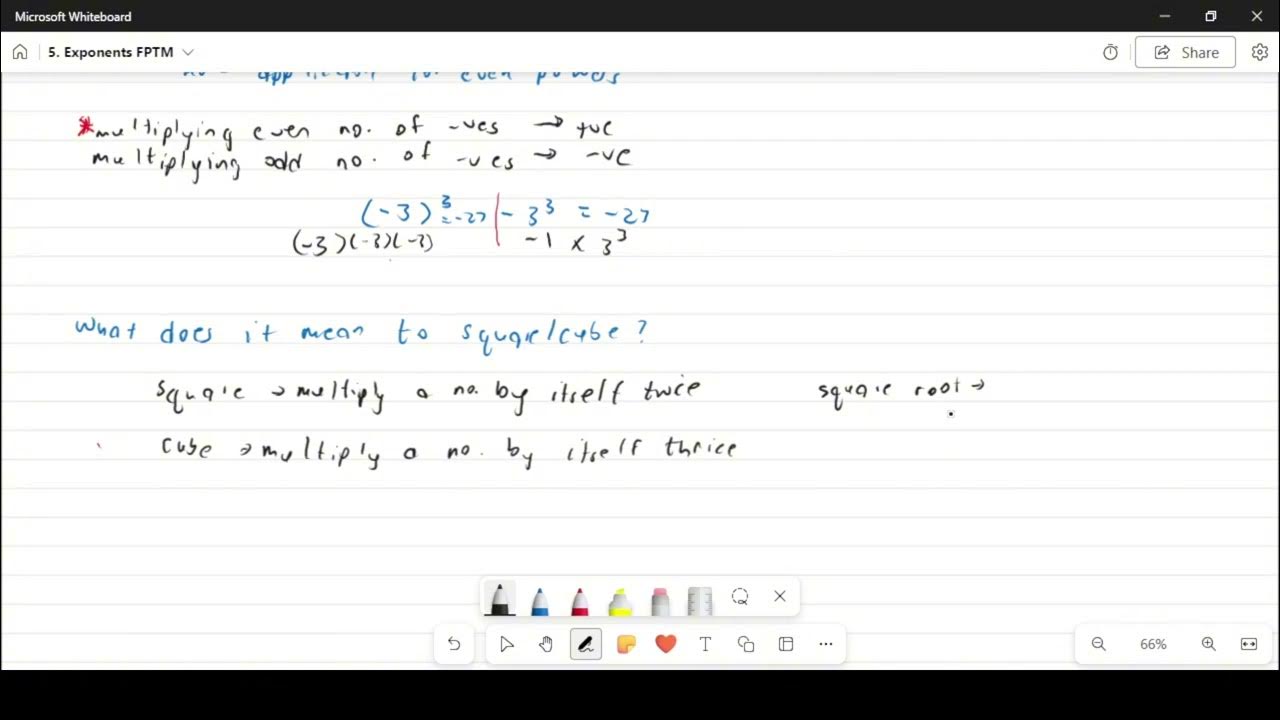 Microsoft Whiteboard
5. Exponents FPTM
Share
no - application for even powers
*multiplying even no. of -ves → +ve
multiplying odd no. of -ves → -ve
(-3)³ = -27 | - 3³ = -27
(-3)(-3)(-3) -1 x 3³
What does it mean to square/cube?
square → multiply a no. by itself twice square root →
cube → multiply a no. by itself thrice
T
66%